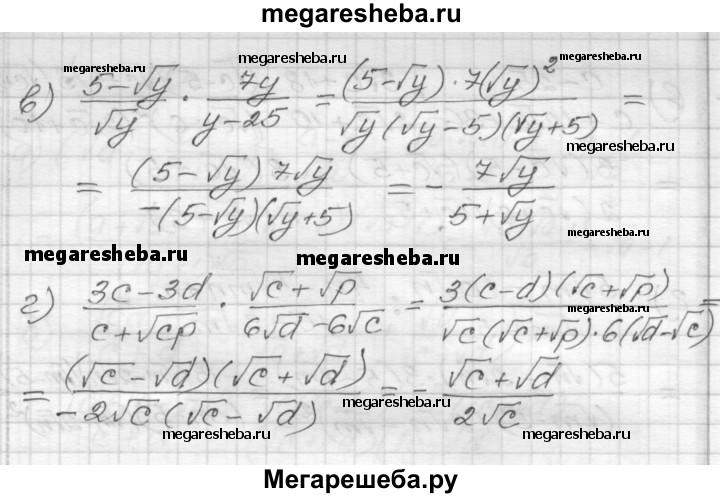 megaresheba.ru
megaresheba.ru megaresheba.ru megaresheba.ru
в) (5-√y)/√y · 7y/(y-25) = ((5-√y)·7(√y)²)/(√y(√y-5)(√y+5)) =
megaresheba.ru
= ((5-√y)7√y)/(-(5-√y)(√y+5)) = - 7√y/(5+√y)
megaresheba.ru
megaresheba.ru megaresheba.ru
г) (3c-3d)/(c+√cp) · (√c+√p)/(6√d-6√c) = (3(c-d)(√c+√p))/(√c(√c+√p)·6(√d-√c)) =
megaresheba.ru
= ((√c-√d)(√c+√d))/(-2√c(√c-√d)) = - (√c+√d)/(2√c)
megaresheba.ru
megaresheba.ru megaresheba.ru
Мегарешеба.ру